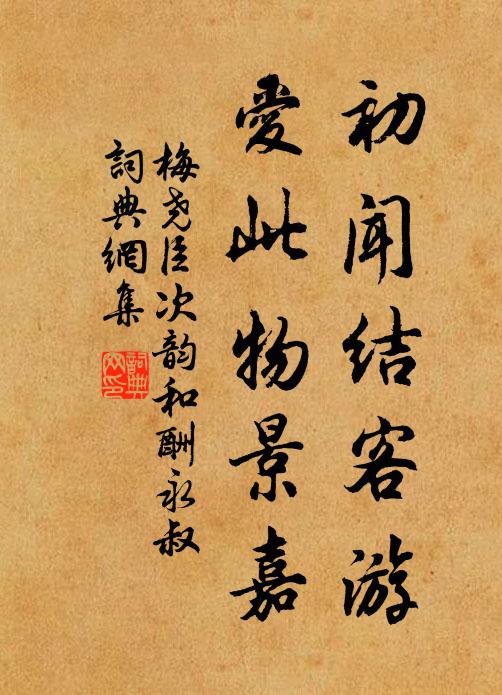 初闻结客游
愛此物景嘉
梅尧臣次韵和酬永叔
詞典網集
詞典网印